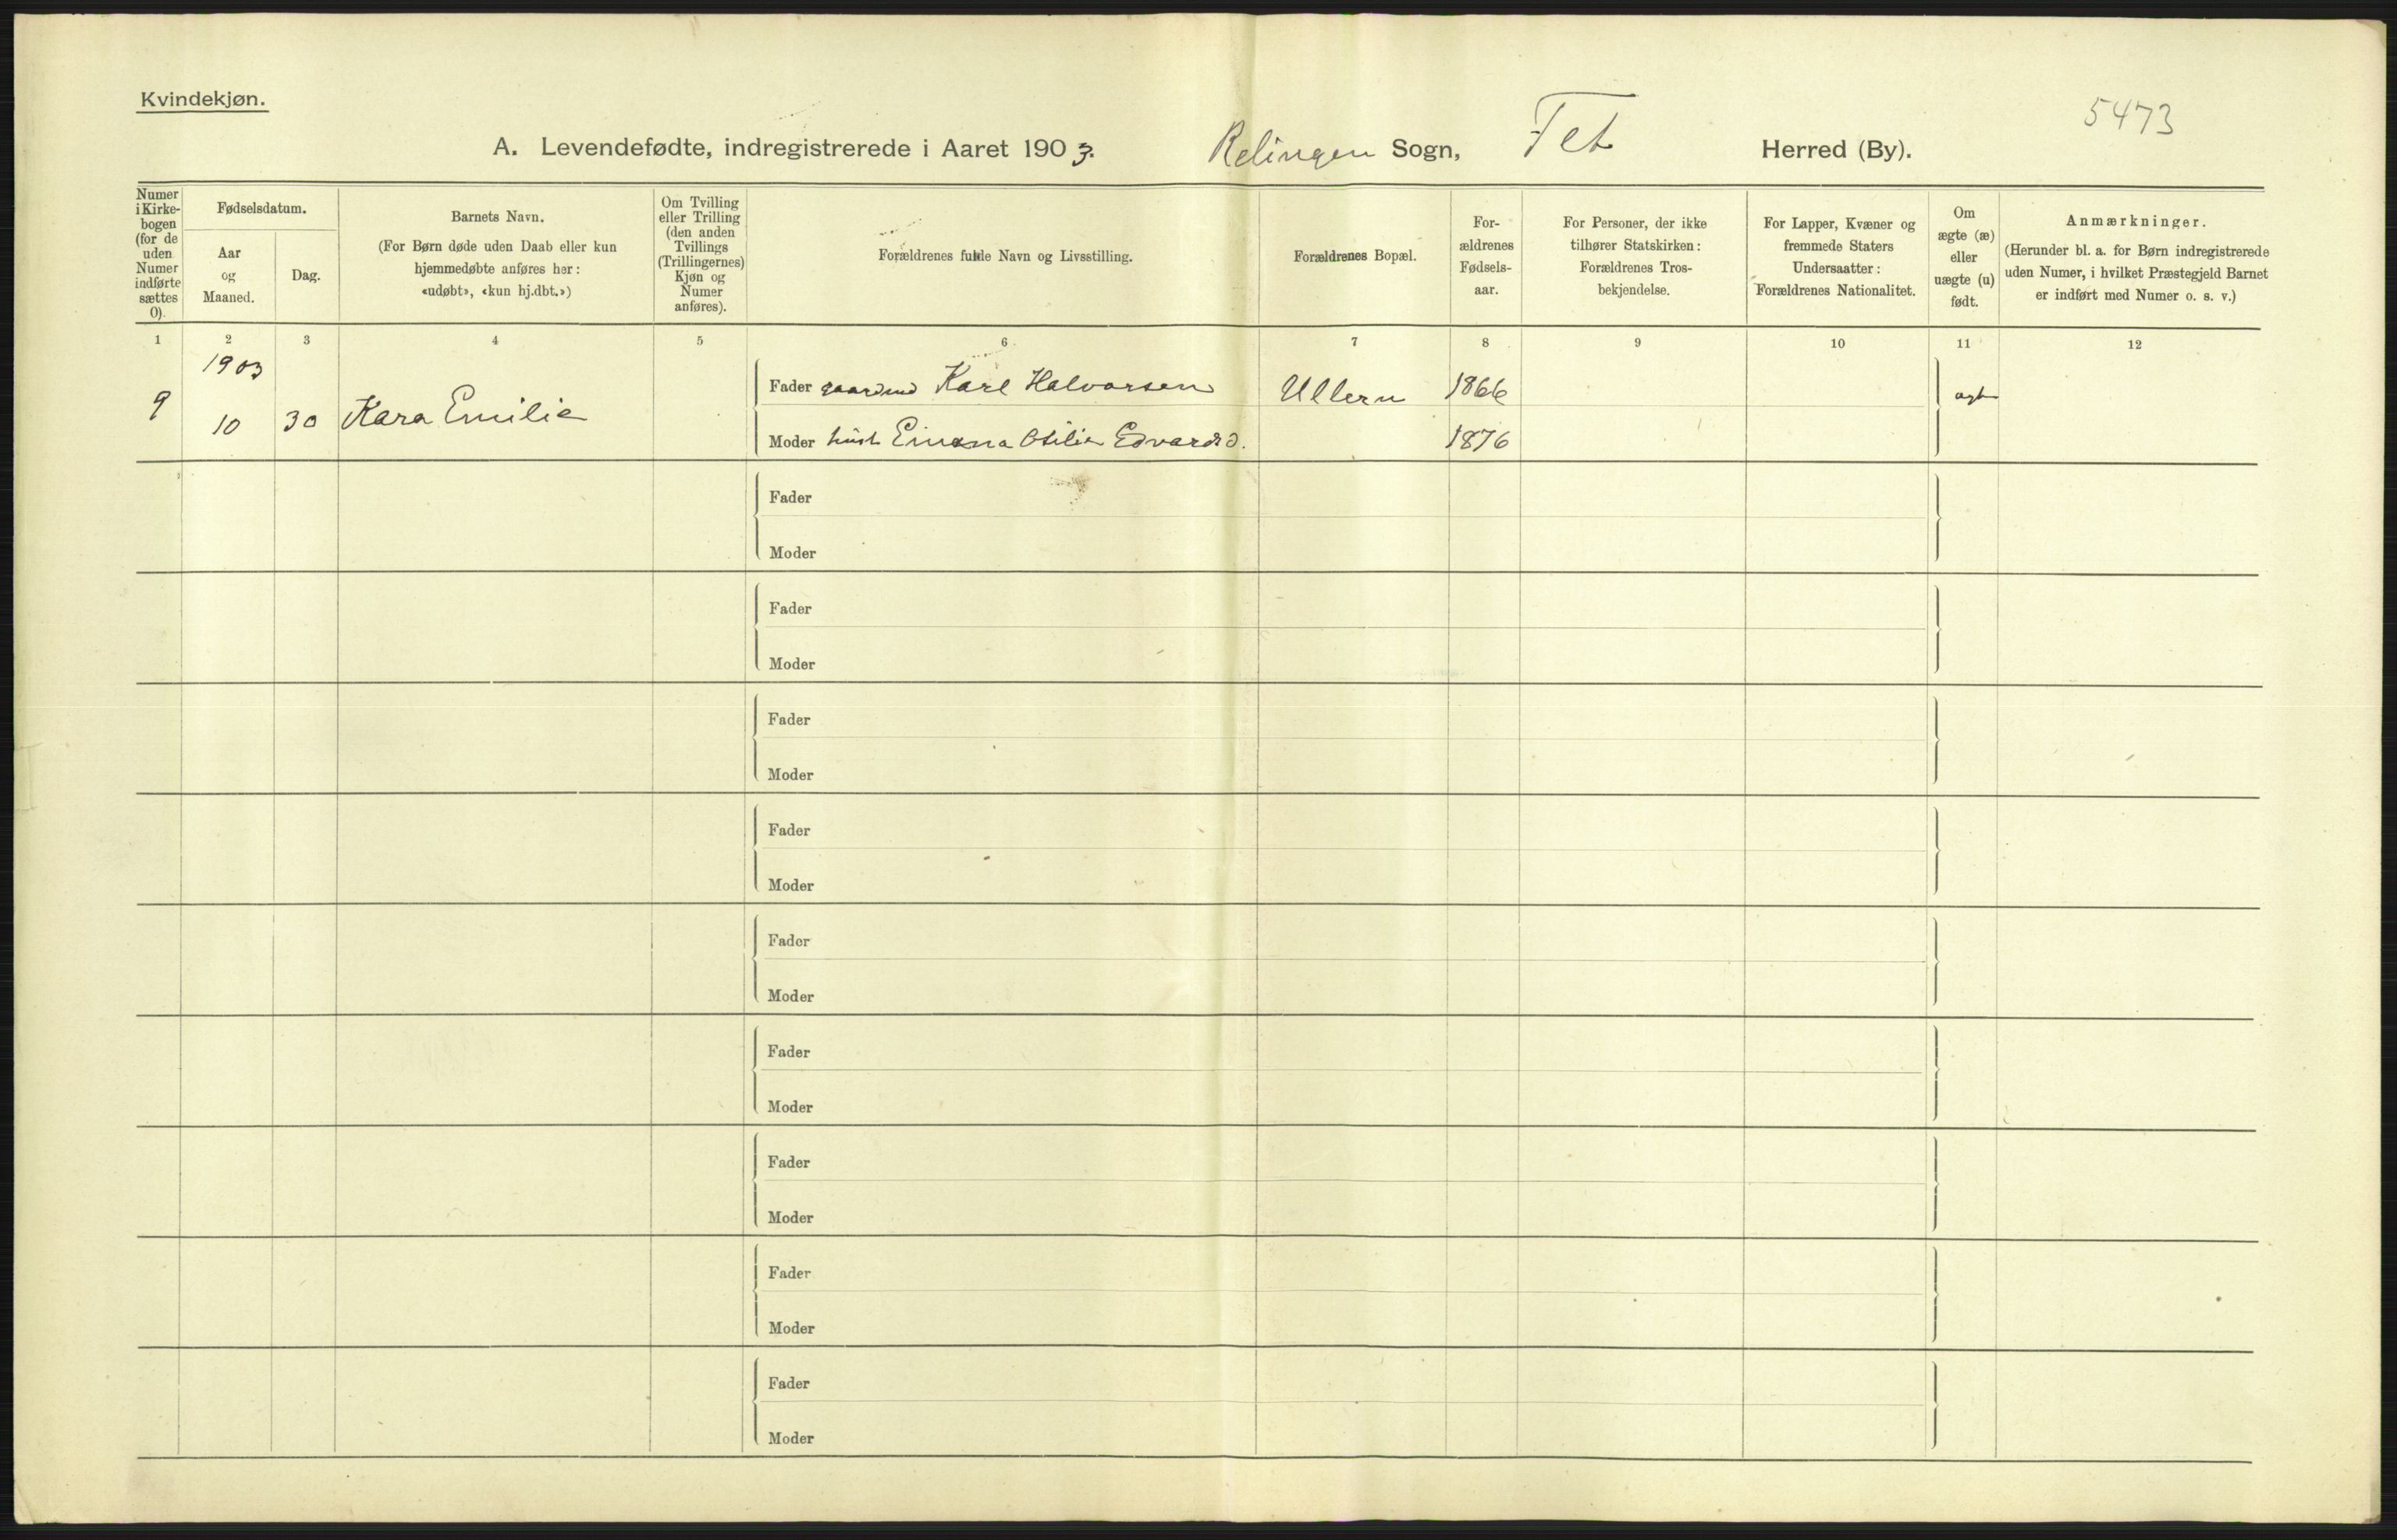 Kvindekjøn.
5473
A. Levendefødte, indregistrerede i Aaret 1903. Relingen Sogn, Fet Herred (By).
Numer i Kirke-bogen (for de uden Numer indførte sættes 0).
Fødselsdatum.
Aar og Maaned.
Dag.
Barnets Navn.
(For Børn døde uden Daab eller kun
hjemmedøbte anføres her:
«udøbt», «kun hj.dbt.»)
Om Tvilling
eller Trilling
(den anden
Tvillings
(Trillingernes)
Kjøn og
Numer
anføres).
Forældrenes fulde Navn og Livsstilling.
Forældrenes Bopæl.
For-
ældrenes
Fødsels-
aar.
For Personer, der ikke
tilhører Statskirken:
Forældrenes Tros-
bekjendelse.
For Lapper, Kvæner og
fremmede Staters
Undersaatter:
Forældrenes Nationalitet.
Om
ægte (æ)
eller
uægte (u)
født.
Anmærkninger.
(Herunder bl. a. for Børn indregistrerede
uden Numer, i hvilket Præstegjeld Barnet
er indført med Numer o. s. v.)
1 2 3 4 5 6 7 8 9 10 11 12
1903
Fader gaardmd Karl Halvorsen Ullern 1866
9 10 30 Kara Emilie
Moder Emma Otilie Edvardsd. 1876
Fader
Moder
Fader
Moder
Fader
Moder
Fader
Moder
Fader
Moder
Fader
Moder
Fader
Moder
Fader
Moder
Fader
Moder